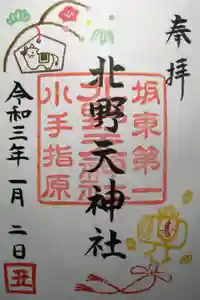 奉拝
坂東第一
北野天神社
小手指原
令和三年一月二日
丑